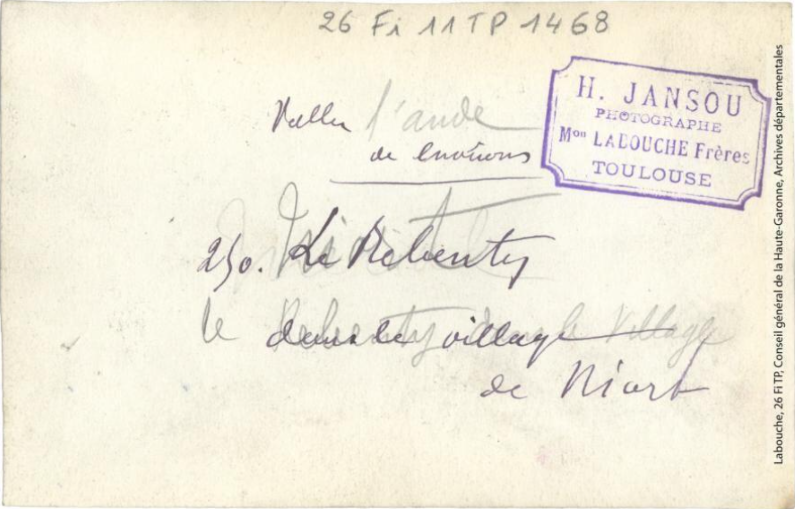 26 Fi 11 TP 1468
H. JANSOU
PHOTOGRAPHE
Mon LABOUCHE Frères
TOULOUSE
l'aude
de environs
250. Le Rebenty
le Rebenty dans le Village
dans le village
de Niort
Labouche, 26 Fi TP, Conseil général de la Haute-Garonne, Archives départementales